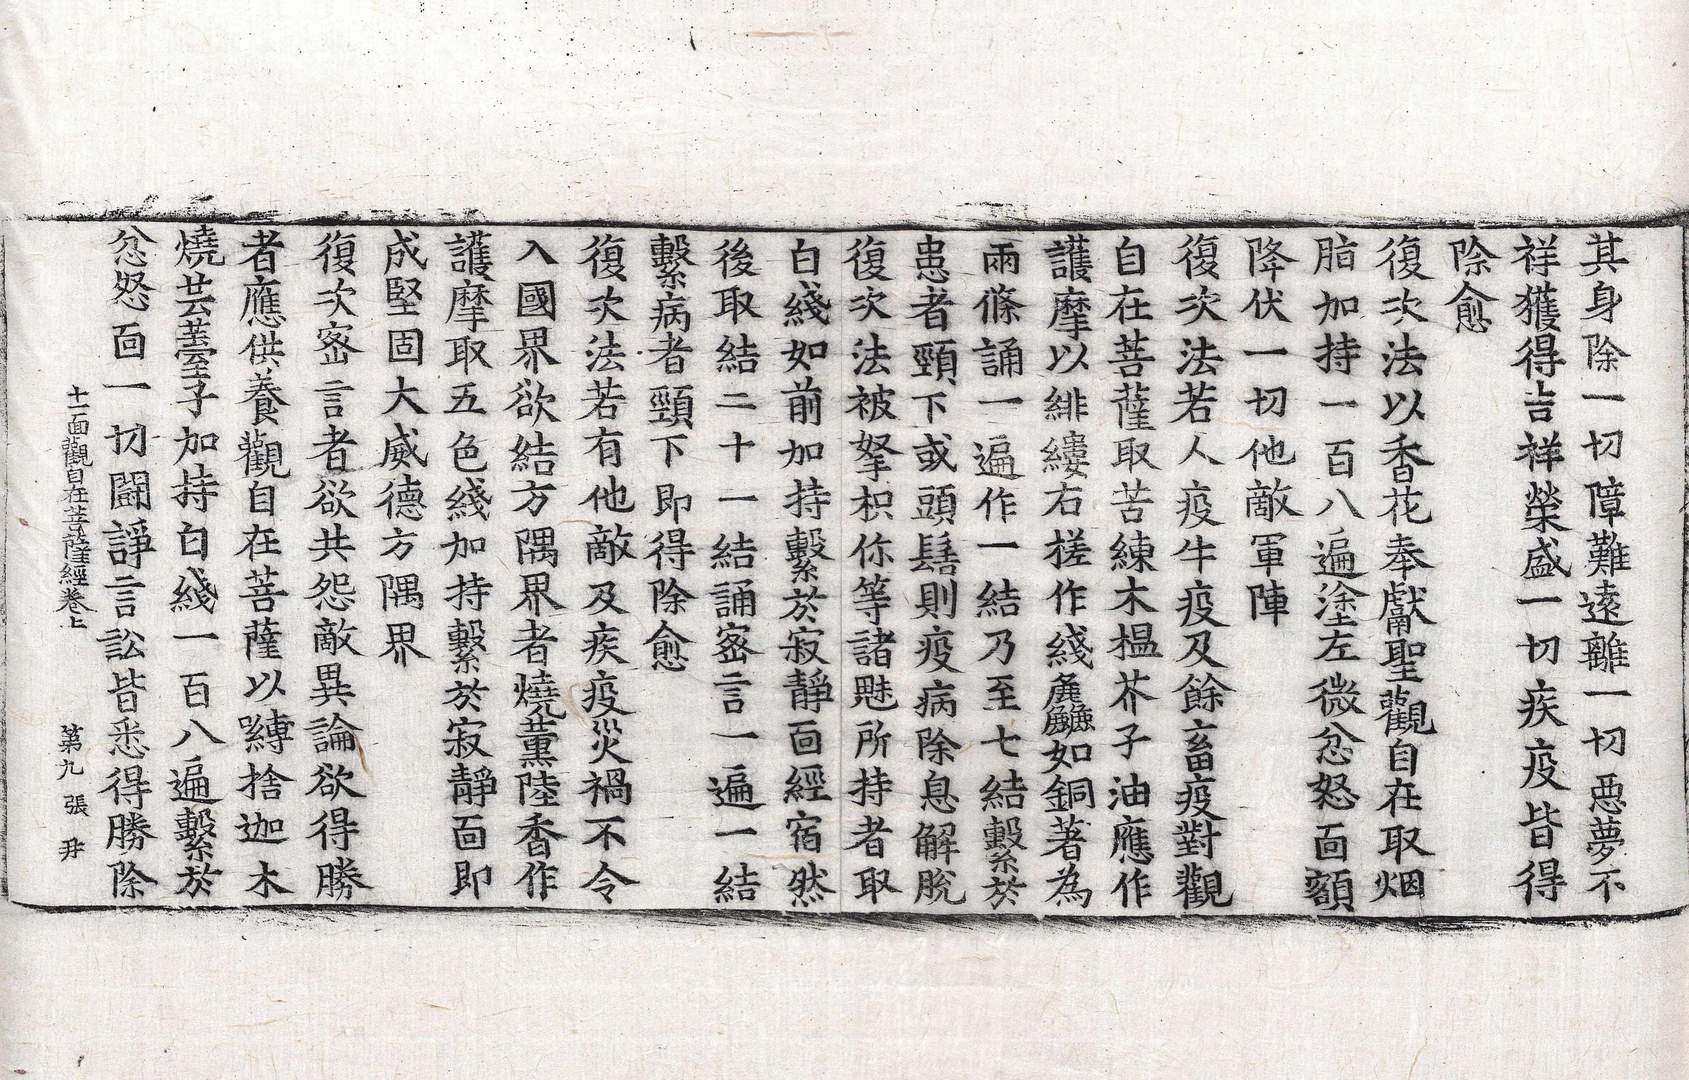 其身除一切障難遠離一切惡夢不
祥獲得吉祥榮盛一切疾疫皆得
除愈
復次法以香花奉獻聖觀自在取烟
脂加持一百八遍塗左微忿怒面額
降伏一切他敵軍陣
復次法若人疫牛疫及餘畜疫對觀
自在菩薩取苦練木榅芥子油應作
護摩以緋縷右搓作綫麁如銅著為
兩條誦一遍作一結乃至七結繫於
患者頸下或頭髻則疫病除息解脫
復次法被拏枳你等諸魅所持者取
白綫如前加持繫於寂靜面經宿然
後取結二十一結誦密言一遍一結
繫病者頸下即得除愈
復次法若有他敵及疾疫災禍不令
入國界欲結方隅界者燒薰陸香作
護摩取五色綫加持繫於寂靜面即
成堅固大威德方隅界
復次密言者欲共怨敵異論欲得勝
者應供養觀自在菩薩以嚩捨迦木
燒芸薹子加持白綫一百八遍繫於
忿怒面一切鬪諍言訟皆悉得勝除
十一面觀自在菩薩經卷上 第九張 尹